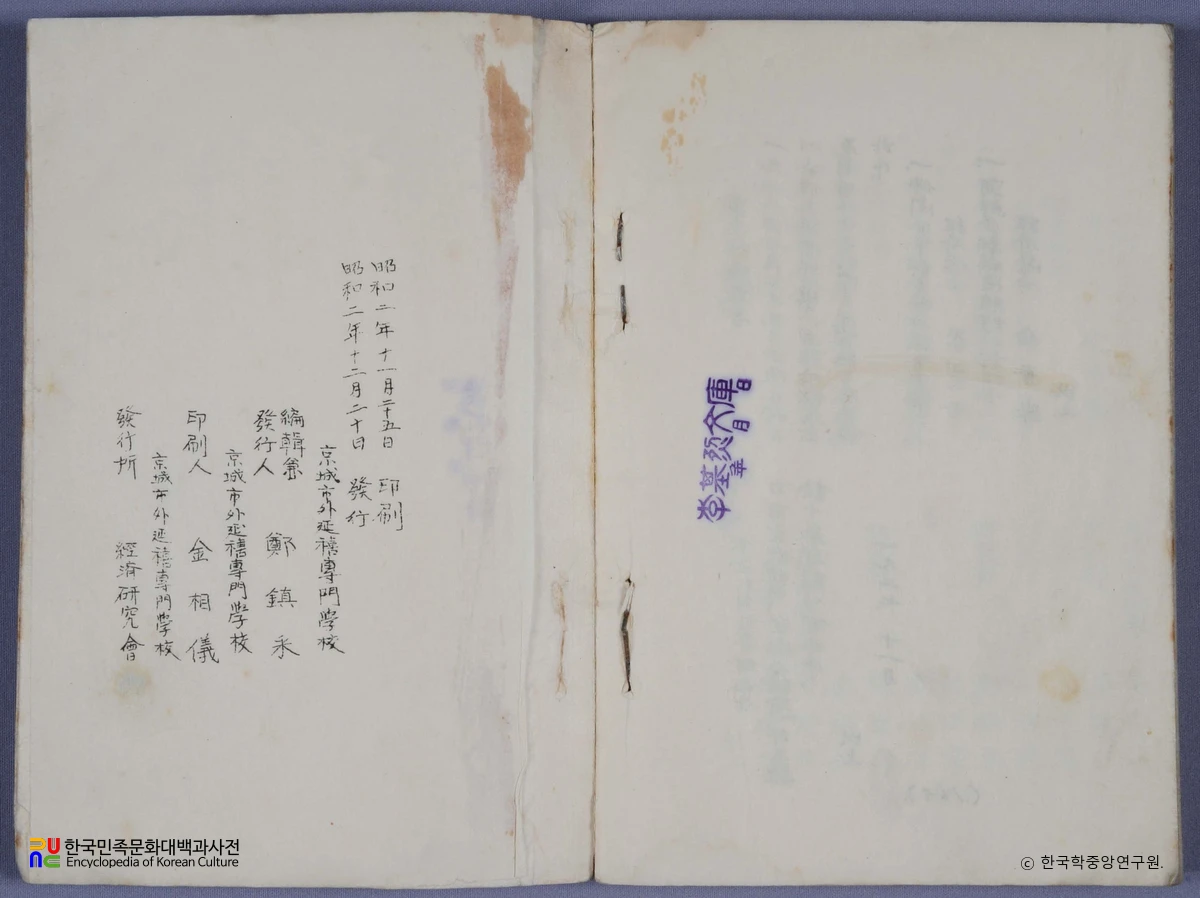 昭和二年十一月二十五日 印刷
昭和二年十二月二十日 發行
京城市外延禧專門學校
編輯兼
發行人 鄭鎮
京城市外延禧專門學校
印刷人 金相儀
京城市外延禧專門學校
發行所 經濟研究會
文庫
한국민족문화대백과사전
Encyclopedia of Korean Culture
© 한국학중앙연구원.